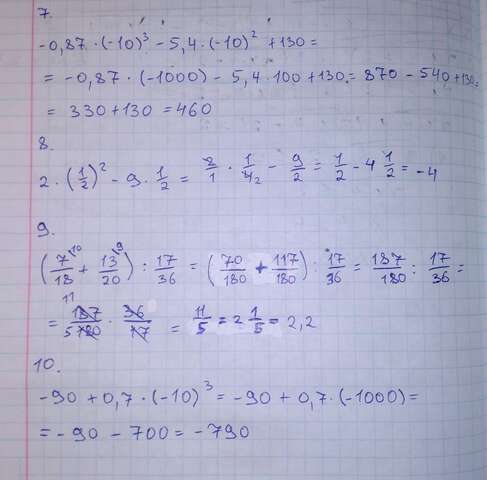 7.
-0,87 · (-10)³ - 5,4 · (-10)² + 130 =
= -0,87 · (-1000) - 5,4 · 100 + 130 = 870 - 540 + 130 =
= 330 + 130 = 460
8.
2 · (1/2)² - 9 · 1/2 = 2/1 · 1/4 2 - 9/2 = 1/2 - 4 1/2 = -4
9.
(7/18 \10 + 13/20 \9) : 17/36 = (70/180 + 117/180) : 17/36 = 187/180 : 17/36 =
= 11 187/5 180 · 36/17 = 11/5 = 2 1/5 = 2,2
10.
-90 + 0,7 · (-10)³ = -90 + 0,7 · (-1000) =
= -90 - 700 = -790